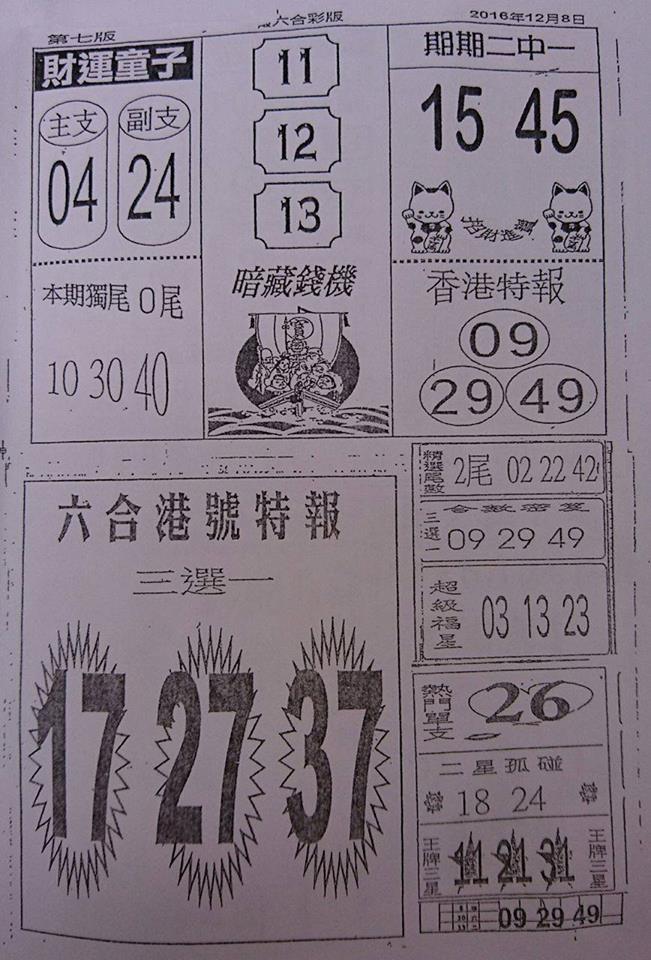 六合彩版
2016年12月8日
第七版
財運童子
主支
副支
04
24
本期獨尾 0尾
10 30 40
11
12
13
暗藏錢機
寶
期期二中一
15 45
香港特報
09
29 49
六合港號特報
三選一
17 27 37
精選尾數
2尾 02 22 42
合數密笈
三選一
09 29 49
超級福星
03 13 23
熱門單支
26
二星孤碰
18 24
王牌三星
11 21 31
王牌三星
09 29 49